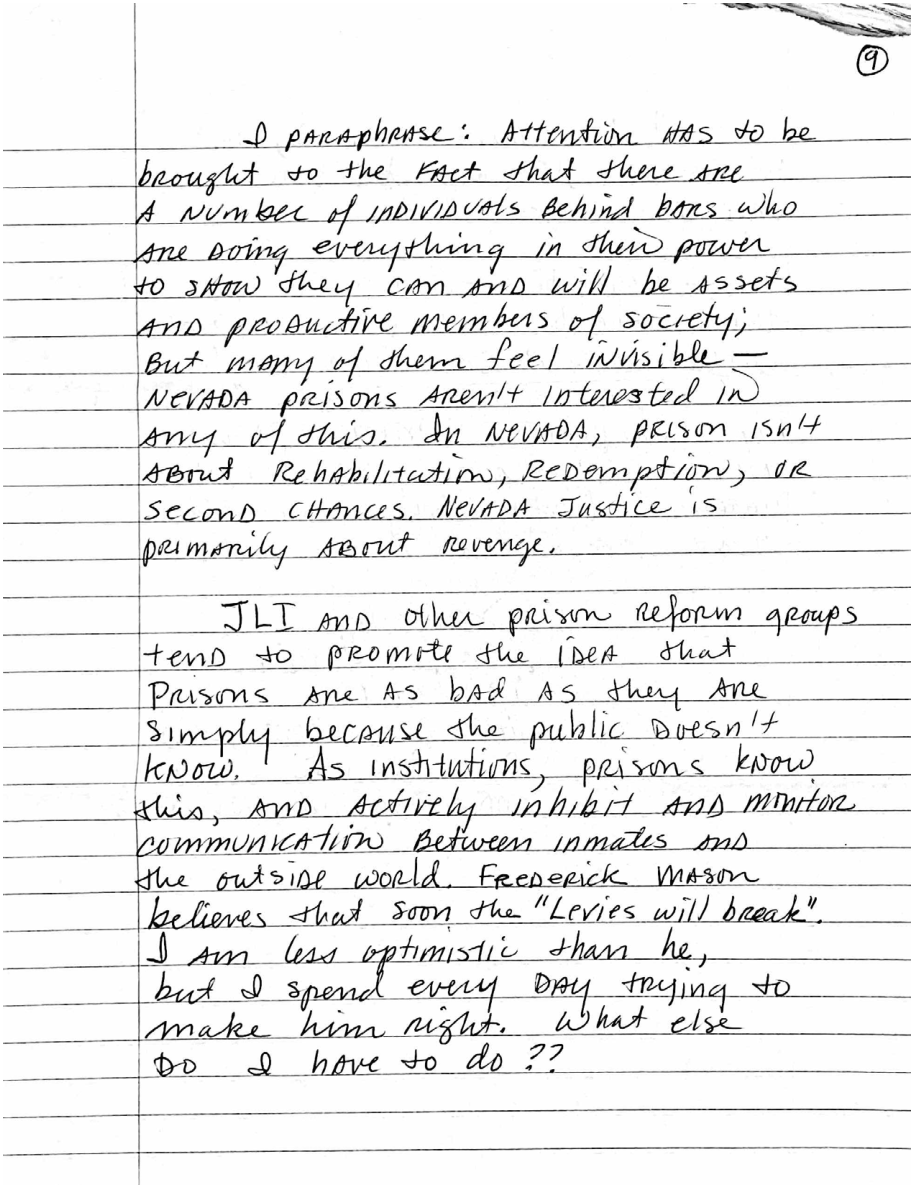 9
I PARAphRASE: Attention HAS to be
brought to the FAct that there ARE
A Number of INDIVIDUALS Behind bARS who
ARE DOING everything in their power
to SHOW they CAN AND will be ASSets
AND PRODUctive members of society;
But mANy of them feel INVisible —
NEVADA PRISONS AREN't INterested IN
ANY of this. IN NEVADA, PRISON ISN't
ABOUt RehAbilitation, REDemption, OR
SECOND CHANCES. NEVADA Justice is
PRIMARily ABOUt Revenge.
JLI AND other prison Reform gROUPS
tEND to PROMOte the IDEA that
PRISONS ARE AS bAD AS they ARE
SIMPly because the public DOESN't
KNOW. As INstitutions, PRISONS KNOW
this, AND Actively INhibit AND MONitOR
COMMUNICAtION BETWEEN INMATES AND
the OUtSIDE WORLD. FREDERICK MASON
believes that SOON the "Levies will break".
I AM less optimistic than he,
but I spend every DAY tRyING to
MAKE him Right. What else
DO I hAve to do ??